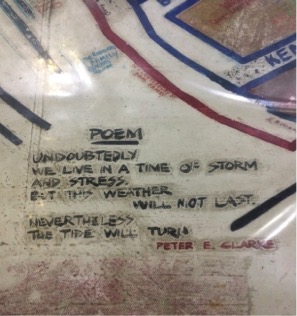 KEN
POEM
UNDOUBTEDLY
WE LIVE IN A TIME OF STORM
AND STRESS.
BUT THIS WEATHER
WILL NOT LAST.
NEVERTHELESS
THE TIDE WILL TURN
PETER E. CLARKE